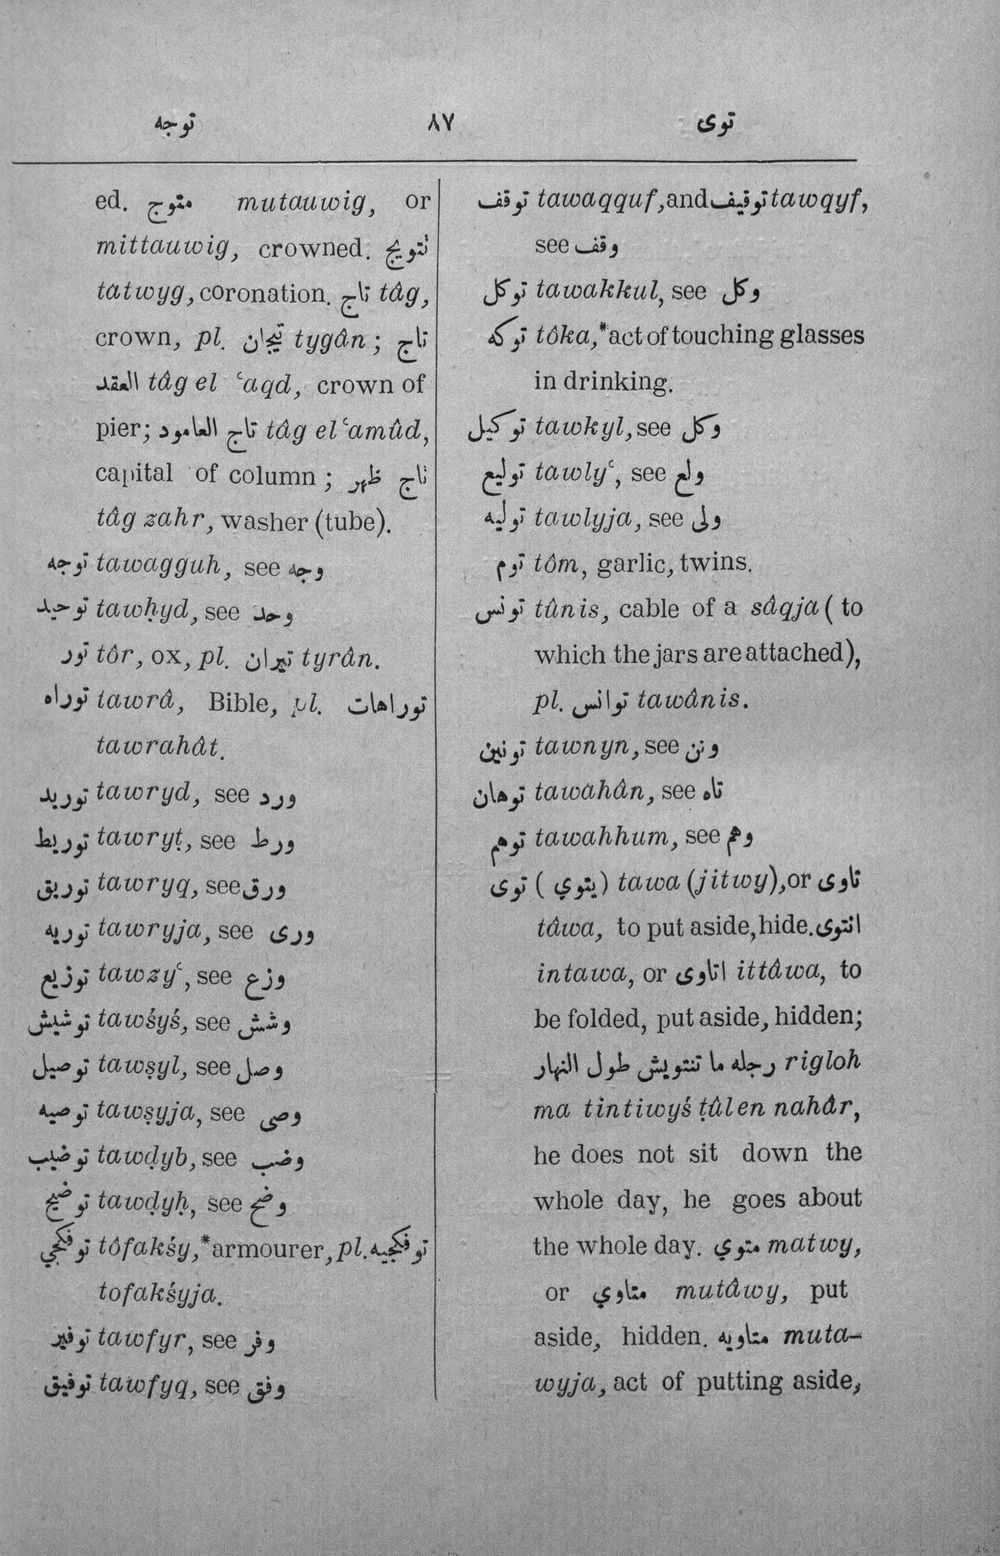 توجه ٨٧ توى
ed. متوج mutauwig, or
mittauwig, crowned. تتويج
tatwyg, coronation. تاج tâg,
crown, pl. تيجان tygân; تاج
العقد tâg el ʿaqd, crown of
pier; تاج العامود tâg el ʿamûd,
capital of column; تاج ظهر
tâg zahr, washer (tube).
توجه tawagguh, see وجه
توحيد tawḥyd, see وحد
تور tôr, ox, pl. تيران tyrân.
توراه tawrâ, Bible, pl. توراهات
tawrahât.
توريد tawryd, see ورد
توريط tawryṭ, see ورط
توريق tawryq, see ورق
توريه tawryja, see ورى
توزيع tawzyʿ, see وزع
توشيش tawśyś, see وشش
توصيل tawṣyl, see وصل
توصيه tawṣyja, see وصى
توضيب tawḍyb, see وضب
توضيح tawḍyḥ, see وضح
توفكجي tôfakśy,*armourer, pl. توفكجيه
tofakśyja.
توفير tawfyr, see وفر
توفيق tawfyq, see وفق
توقف tawaqquf, and توقيف tawqyf,
see وقف
توكل tawakkul, see وكل
توكه tôka,*act of touching glasses
in drinking.
توكيل tawkyl, see وكل
توليع tawlyʿ, see ولع
توليه tawlyja, see ولى
توم tôm, garlic, twins.
تونس tûnis, cable of a sâqja (to
which the jars are attached),
pl. توانس tawânis.
تونين tawnyn, see ونن
توهان tawahân, see تاه
توهم tawahhum, see وهم
توى ( يتوي ) tawa (jitwy), or تاوى
tâwa, to put aside, hide. انتوى
intawa, or اتاوى ittâwa, to
be folded, put aside, hidden;
رجله ما تنتويش طول النهار rigloh
ma tintiwyś ṭûlen nahâr,
he does not sit down the
whole day, he goes about
the whole day. متوي matwy,
or متاوي mutâwy, put
aside, hidden. متاويه muta-
wyja, act of putting aside,